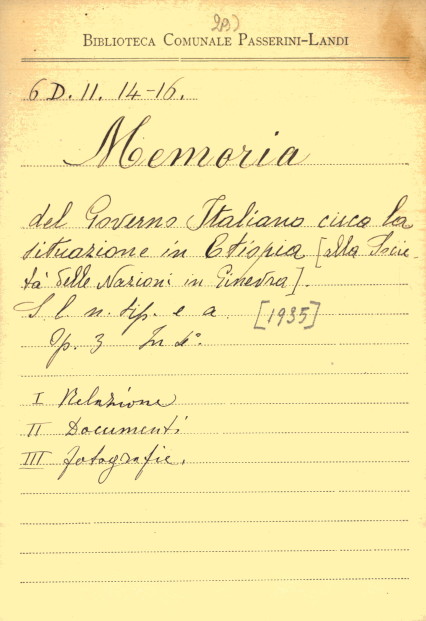 BIBLIOTECA COMUNALE PASSERINI-LANDI
6 D. II. 14-16.
Memoria
del Governo Italiano circa la
situazione in Etiopia [alla Socie-
tà delle Nazioni in Ginevra].
S l n. tip. e a [1935]
Op. 3 In 4°.
I Relazione
II Documenti
III fotografie.